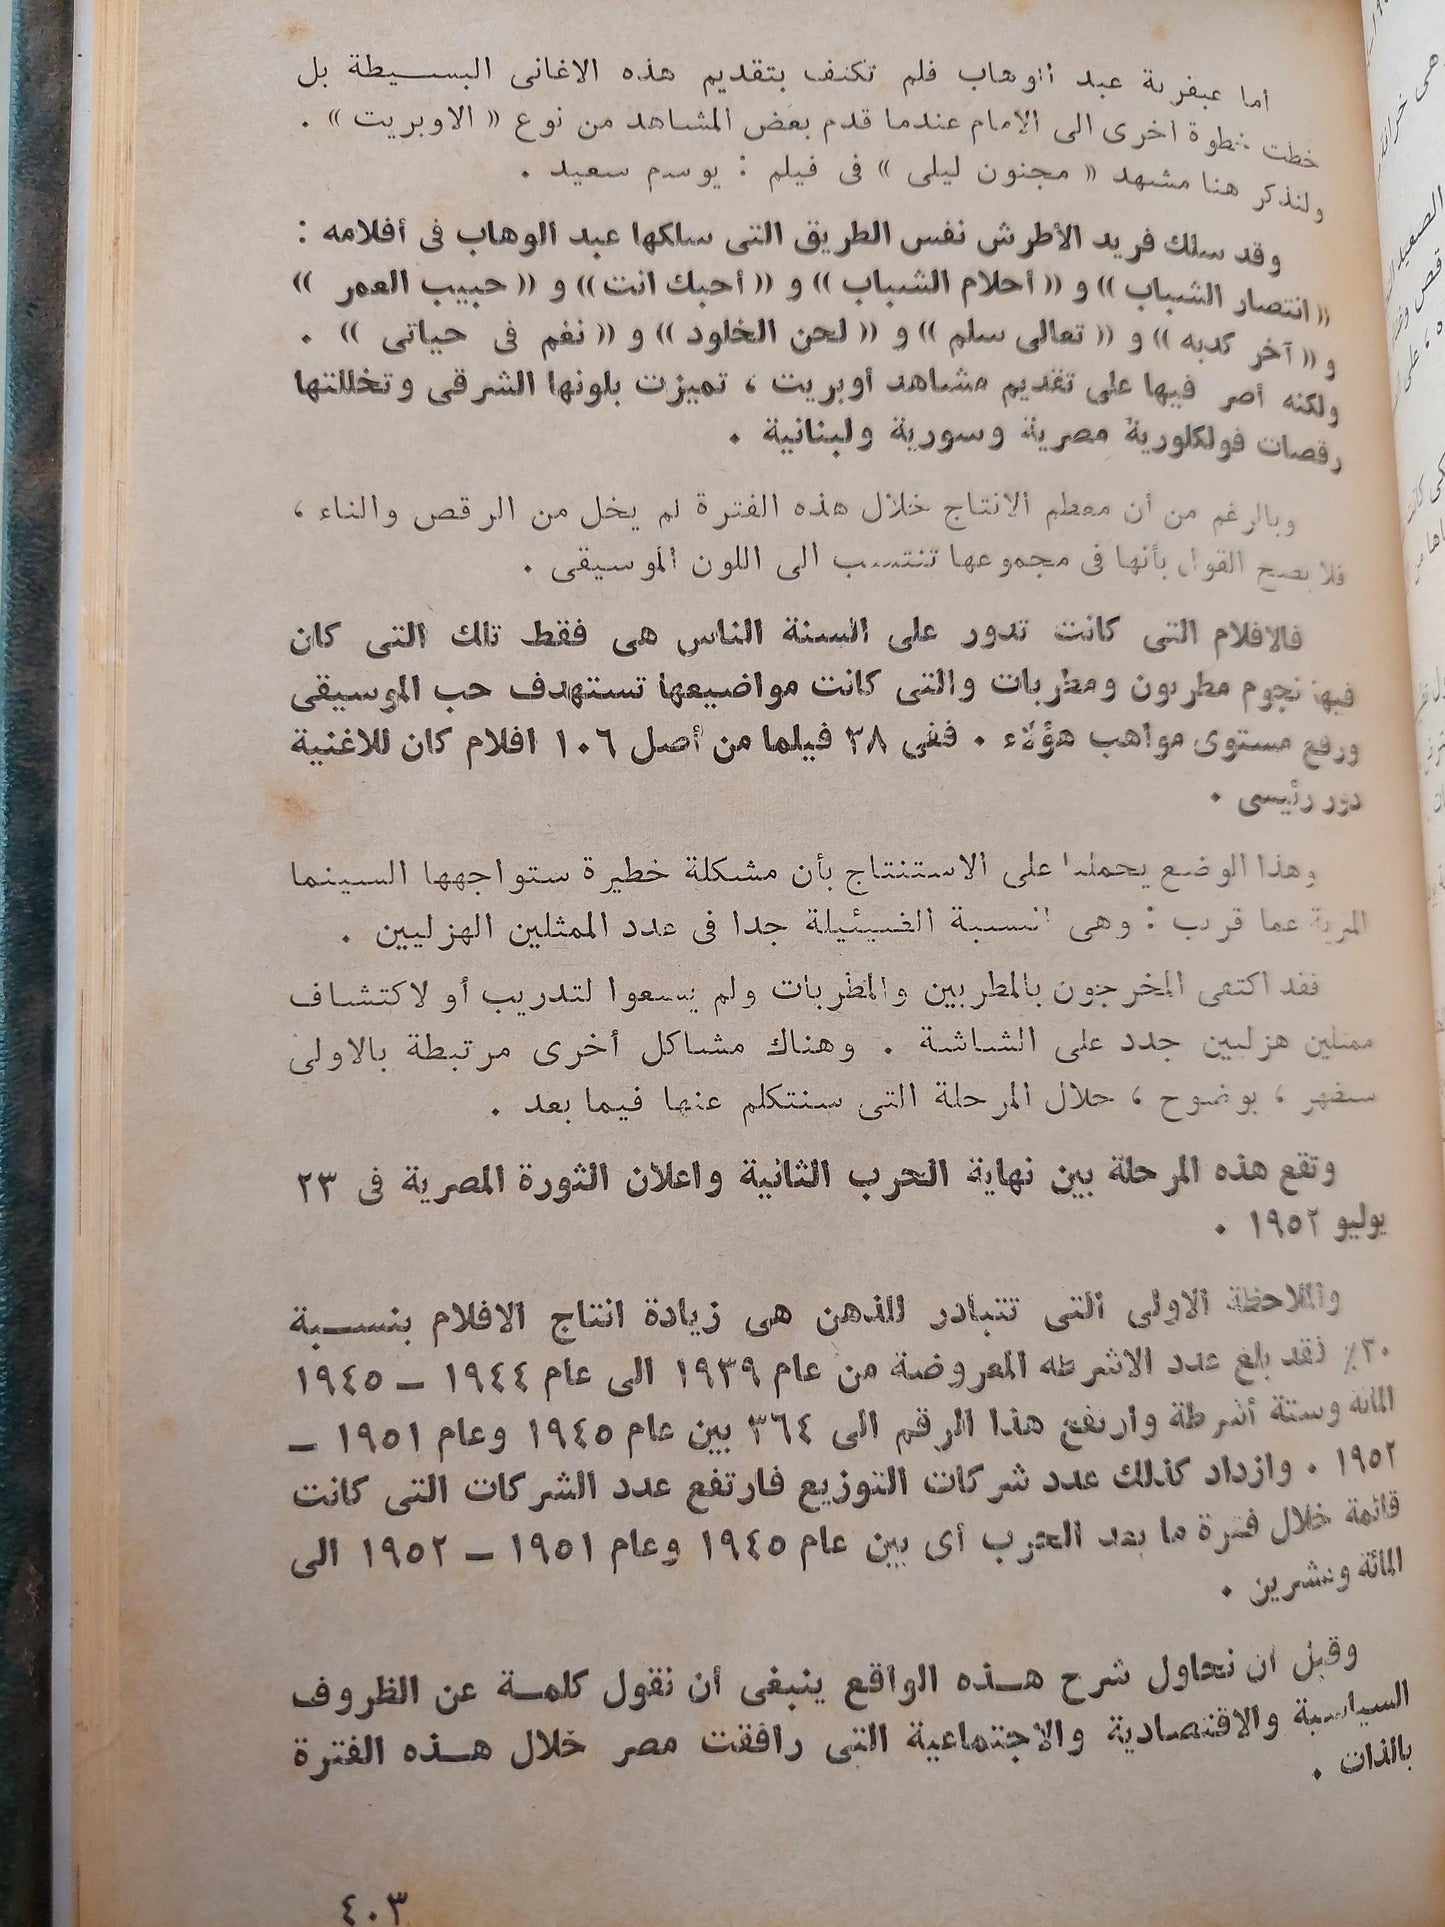 اما عبقرية عبد الوهاب فلم تكتف بتقديم هذه الاغانى البسيطة بل
خطت خطوة أخرى الى الامام عندما قدم بعض المشاهد من نوع « الاوبريت » .
ولنذكر هنا مشهد « مجنون ليلى » فى فيلم : يوسم سعيد .
وقد سلك فريد الأطرش نفس الطريق التى سلكها عبد الوهاب فى أفلامه :
« انتصار الشباب » و « أحلام الشباب » و « أحبك انت » و « حبيب العمر »
و « آخر كدبه » و « تعالى سلم » و « لحن الخلود » و « نغم فى حياتى » .
ولكنه أصر فيها على تقديم مشاهد أوبريت ، تميزت بلونها الشرقى وتخللتها
رقصات فولكلورية مصرية وسورية ولبنانية .
وبالرغم من أن معظم الانتاج خلال هذه الفترة لم يخل من الرقص والناء ،
فلا يصح القول بأنها فى مجموعها تنتسب الى اللون الموسيقى .
فالافلام التى كانت تدور على السنة الناس هى فقط تلك التى كان
فيها نجوم مطربون ومطربات والتى كانت مواضيعها تستهدف حب الموسيقى
ورفع مستوى مواهب هؤلاء . ففى ٣٨ فيلما من أصل ١٠٦ افلام كان للاغنية
دور رئيسى .
وهذا الوضع يحملنا على الاستنتاج بأن مشكلة خطيرة ستواجهها السينما
المرية عما قريب : وهى النسبة الضيئيلة جدا فى عدد الممثلين الهزليين .
فقد اكتفى المخرجون بالمطربين والمطربات ولم يسعوا لتدريب أو لاكتشاف
ممثلين هزليين جدد على الشاشة . وهناك مشاكل أخرى مرتبطة بالاولى
ستظهر ، بوضوح ، خلال المرحلة التى سنتكلم عنها فيما بعد .
وتقع هذه المرحلة بين نهاية الحرب الثانية واعلان الثورة المصرية فى ٢٣
يوليو ١٩٥٢ .
والملاحظة الاولى التى تتبادر للذهن هى زيادة انتاج الافلام بنسبة
٢٠٪ لقد بلغ عدد الاشرطه المعروضة من عام ١٩٣٩ الى عام ١٩٤٤ – ١٩٤٥
المائة وستة أشرطة وارتفع هذا الرقم الى ٣٦٤ بين عام ١٩٤٥ وعام ١٩٥١ –
١٩٥٢ . وازداد كذلك عدد شركات التوزيع فارتفع عدد الشركات التى كانت
قائمة خلال فترة ما بعد الحرب أى بين عام ١٩٤٥ وعام ١٩٥١ – ١٩٥٢ الى
المائة وعشرين .
وقبل ان نحاول شرح هذه الواقع ينبغى أن نقول كلمة عن الظروف
السياسية والاقتصادية والاجتماعية التى رافقت مصر خلال هذه الفترة
بالذات .
٤٠٣